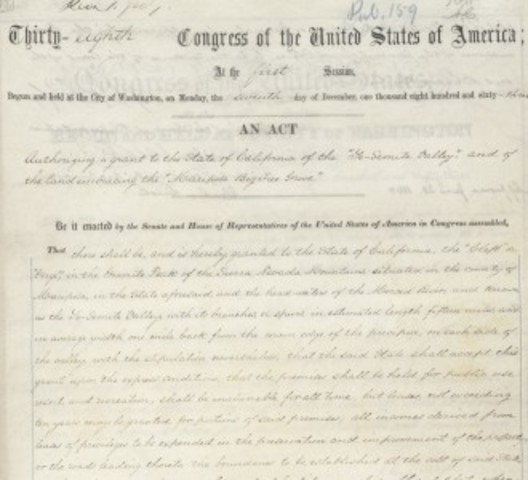 Pub. 159
Thirty-eighth Congress of the United States of America;
At the first Session,
Begun and held at the City of Washington, on Monday, the seventh day of December, one thousand eight hundred and sixty-three
AN ACT
Authorizing a grant to the State of California of the "Yo-Semite Valley," and of
the land embracing the "Mariposa Big Tree Grove."
Be it enacted by the Senate and House of Representatives of the United States of America in Congress assembled,
That there shall be, and is hereby granted to the State of California, the "Cleft" or
"Gorge" in the Granite Peak of the Sierra Nevada Mountains situated in the county of
Mariposa, in the State aforesaid, and the head waters of the Merced River, and known
as the Yo-Semite Valley, with its branches or spurs in estimated length fifteen miles, and
in average width one mile back from the main edge of the precipice, on each side of
the valley, with the stipulation nevertheless, that the said State shall accept this
grant upon the express conditions, that the premises shall be held for public use,
resort, and recreation; shall be inalienable for all time, but leases not exceeding
ten years may be granted for portions of said premises; all incomes derived from
leases of privileges to be expended in the preservation and improvement of the property,
or the roads leading thereto; the boundaries to be established at the cost of said State